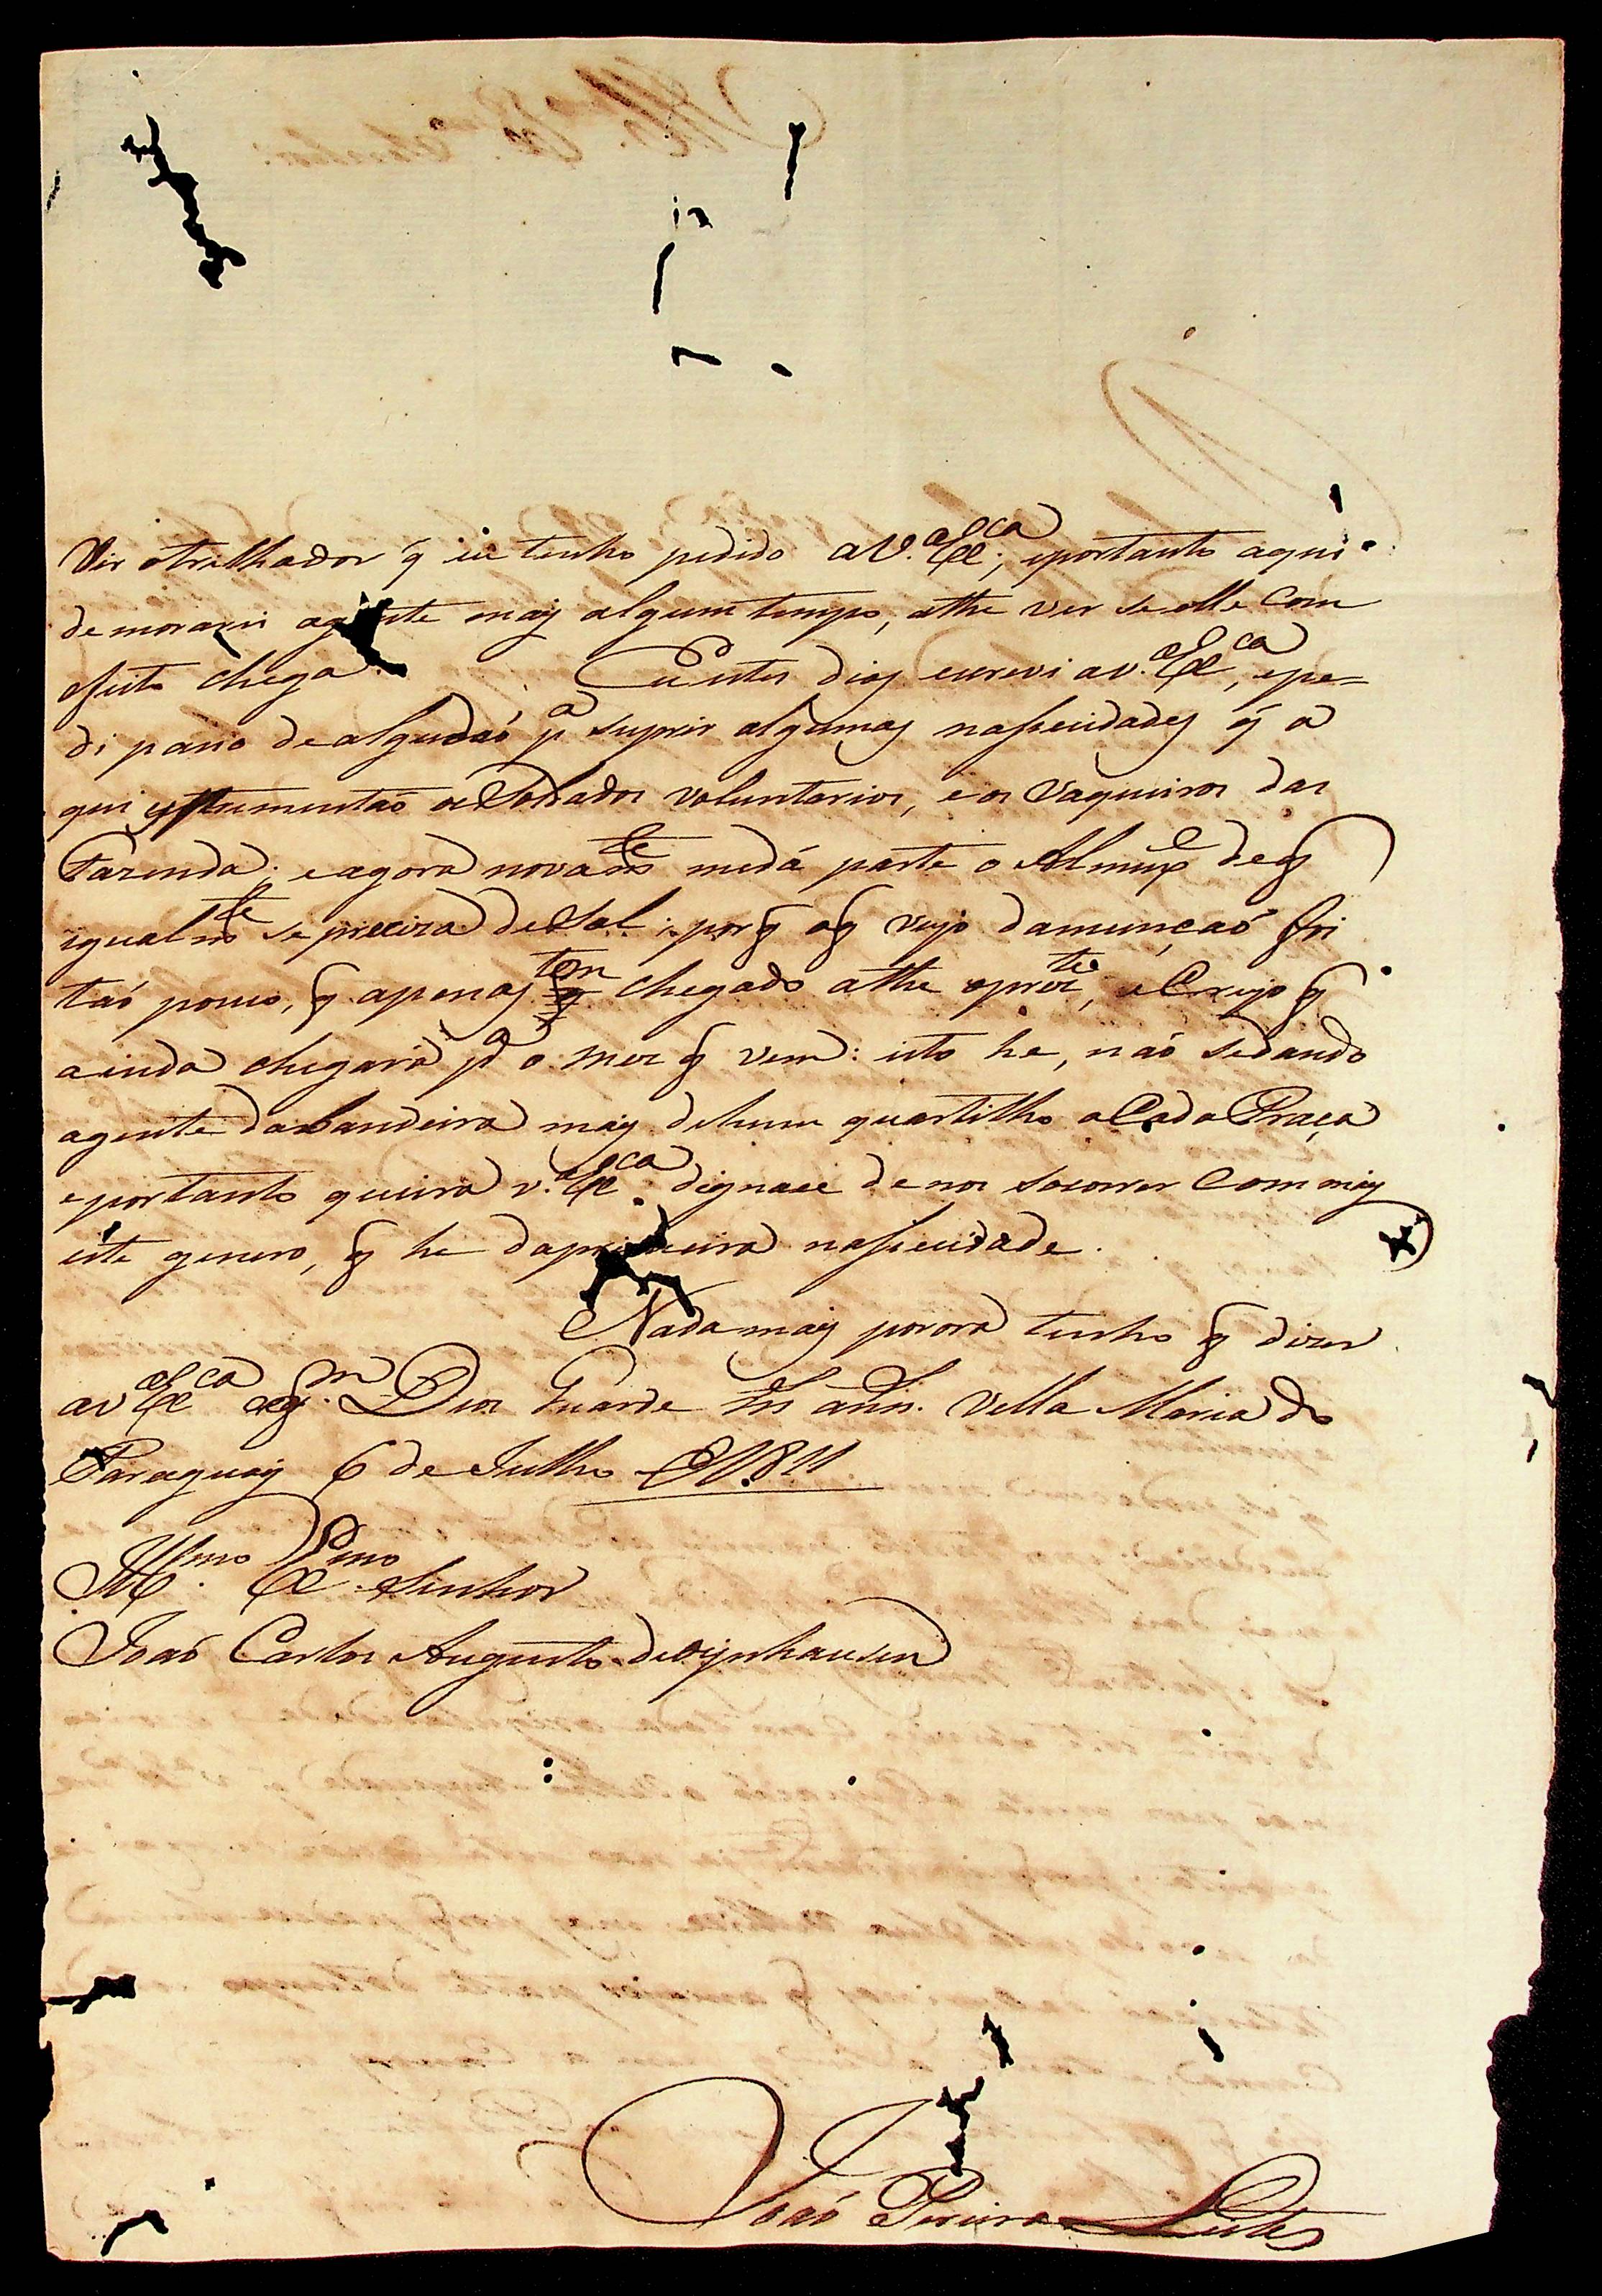 Vir otrilhador q̃ eu tenho pedido aV.ª Exª.ca; eportanto aqui
demorarei agente maiz algum tempo, athe ver se elle com
efeito chega. Eu estes diaz escrevi aV.ª Ex.ca, epe=
di pano de algudaó pª suprir algumaz nasseidadez q̃ a
qui esprimentaó os Soldados voluntarios, e os Vaqueiros das
Fazenda; e agora novamte medá parte o Almoxe deq
igualmte se preciza deSal; porq oq veyo damunçaó foi
taó pouco, q apenaz tem chegado athe oprezte, e Creyo q
ainda chegará pª o mez q vem: isto he, naó sedando
agente dabandeira maiz dehum quartilho aCada Praça
eportanto queira V.ª Ex.ca dignace de nos socorrer Com maiz
este genero, q he daprimeira nasseidade.
Nada maiz porora tenho q dizer
aV.ª Ex.ca aqm. Deos Guarde ms ans. Villa Maria do
Paraguay 6 de Julho de1811
Illmo. Exmo. Senhor
Joaó Carlos Augusto deOeynhausen
Joaó Pereira Leite